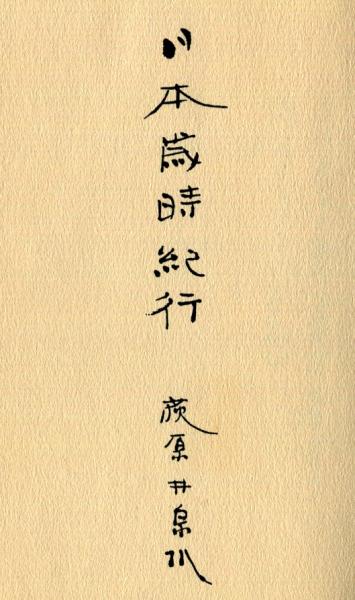 日本歳時紀行
荻原井泉水